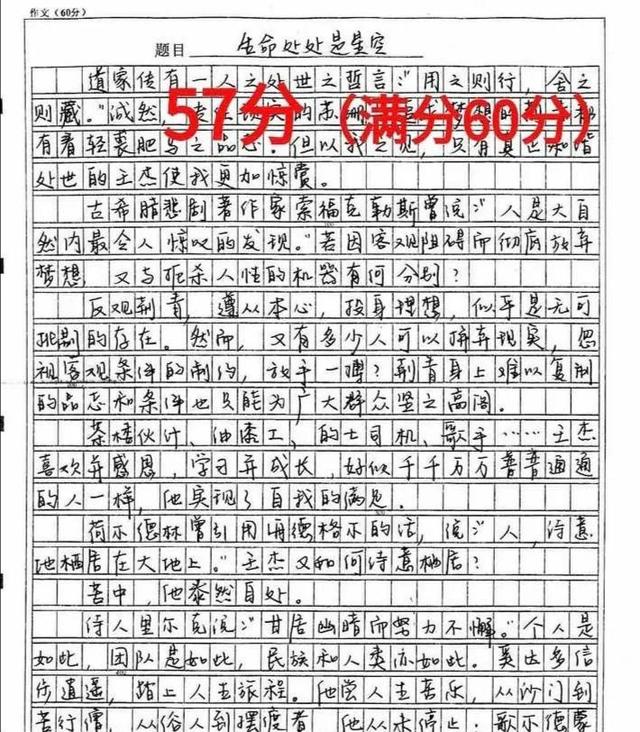 作文（60分）
题目 生命处处是星空
道家传有一人之处世之哲言:"用之则行，舍之
则藏。"诚然，专注现实的苏
57分（满分60分）
有着轻裘肥马之品志。但以我之见，只有真正和谐
处世的王杰使我更加惊赏。
古希腊悲剧著作家索福克勒斯曾说:"人是大自
然内最令人惊叹的发现。"若因客观阻碍而彻底放弃
梦想，又与扼杀人性的机器有何分别？
反观荆青，遵从本心，投身理想，似乎是无可
挑剔的存在。然而，又有多少人可以摒弃现实，忽
视客观条件的制约，放手一搏？荆青身上难以复制
的品志和条件也只能为广大群众坚之高阁。
茶楼伙计、油漆工、的士司机、歌手……王杰
喜欢并感恩，学习并成长，好似千千万万普普通通
的人一样，他实现了自我的满足。
荷尔德林曾引用海德格尔的话，说:"人，诗意
地栖居在大地上。"王杰又如何诗意栖居？
苦中，他泰然自处。
诗人里尔克说:"甘居幽暗而努力不懈。"个人是
如此，团队是如此，民族和人类亦如此。奚达多信
步逍遥，踏上人生旅程。他尝人生苦乐，从沙门到
苦行僧，从俗人到摆渡者，他从未停止；歌尔德蒙